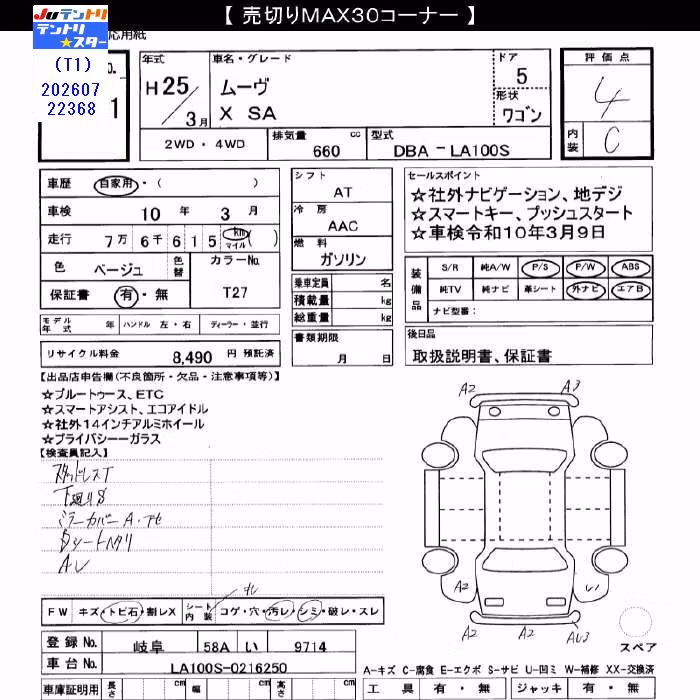 【 売切りMAX30コーナー 】
Juテントリ
テントリ
★スター
応用紙
(T1)
202607
22368
O.
1
年式
H 25/3月
車名・グレード
ムーヴ
X SA
ドア
5
形状
ワゴン
評価点
4
内装
C
2WD・4WD
排気量 cc
660
型式
DBA - LA100S
車歴 自家用・( )
車検 10年 3月
走行 7万6千615 km マイル ( )
色 ベージュ 色替
カラーNo.
T27
保証書 有・無
モデル年式 年 ハンドル 左・右 ディーラー・並行
リサイクル料金 8,490 円 預託済
シフト
AT
冷房
AAC
燃料
ガソリン
乗車定員 名
積載量 kg
総重量 kg
書類期限
月 日
セールスポイント
☆社外ナビゲーション、地デジ
☆スマートキー、プッシュスタート
☆車検令和10年3月9日
装備品
S/R 純A/W P/S P/W ABS
純TV 純ナビ 革シート 外ナビ エアB
ナビ型番:
後日品
取扱説明書、保証書
【出品店申告欄(不良箇所・欠品・注意事項等)】
☆ブルートゥース、ETC
☆スマートアシスト、エコアイドル
☆社外14インチアルミホイール
☆プライバシーーガラス
【検査員記入】
スタッドレスT
下廻りS
ミラーカバーA・アセ
Dシートヘタリ
AU
FW キズ・トビ石・割レX
シート内装 コゲ・穴・汚レ・シミ・破レ・スレ
A2
A3
A2
A2
U1
AU3
スペア
登録No. 岐阜 58A い 9714
車台No. LA100S-0216250
車庫証明用 長さ cm 幅 cm cm
A-キズ C-腐食 E-エクボ S-サビ U-凹ミ W-補修 XX-交換済
工具 有・無 ジャッキ 有・無